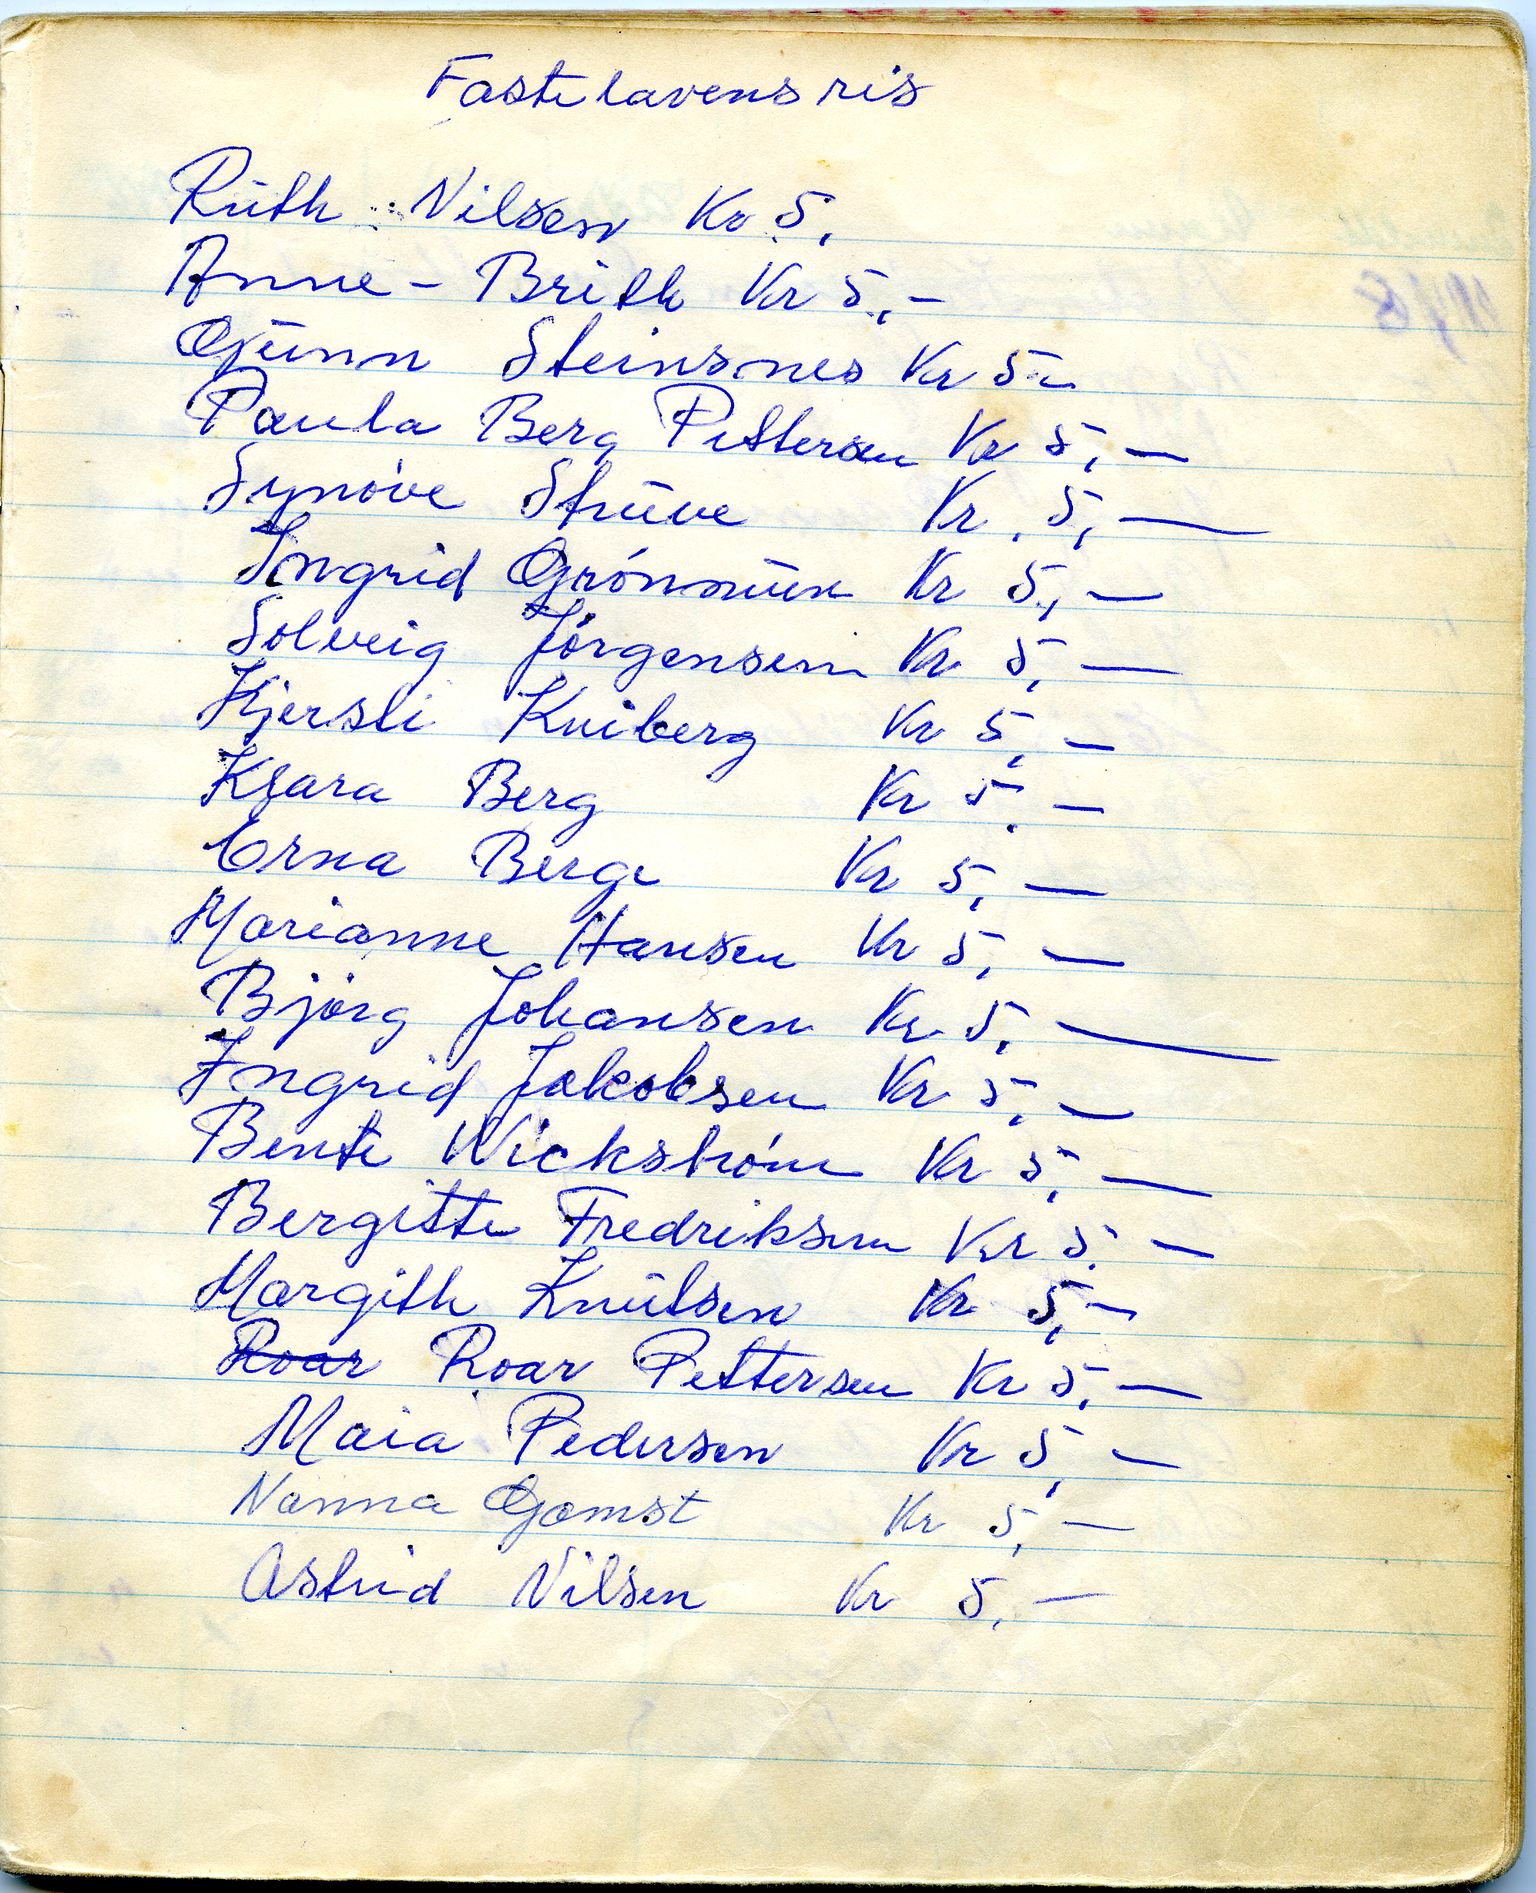 Fastelavens ris
Ruth Nilsen Kr 5,
Anne-Brith Kr 5,-
Gjunn Steinsnes Kr 5,-
Paula Berg Pettersen Kr 5,-
Synöve Strüve Kr. 5,-
Ingrid Grónmün Kr 5,-
Solveig Jörgensen Kr 5,-
Kjersti Kniberg Kr 5,-
Klara Berg Kr 5,-
Erna Berge Kr 5,-
Marianne Hansen Kr 5,-
Björg Johansen Kr 5,-
Ingrid Jakobsen Kr 5,-
Bente Wickström Kr 5,-
Bergitte Fredriksen Kr 5,-
Margith Knutsen Kr 5,-
Roar Roar Pettersen Kr 5,-
Maia Pedersen Kr 5,-
Nanna Gamst Kr 5,-
Astrid Nilsen Kr 5,-